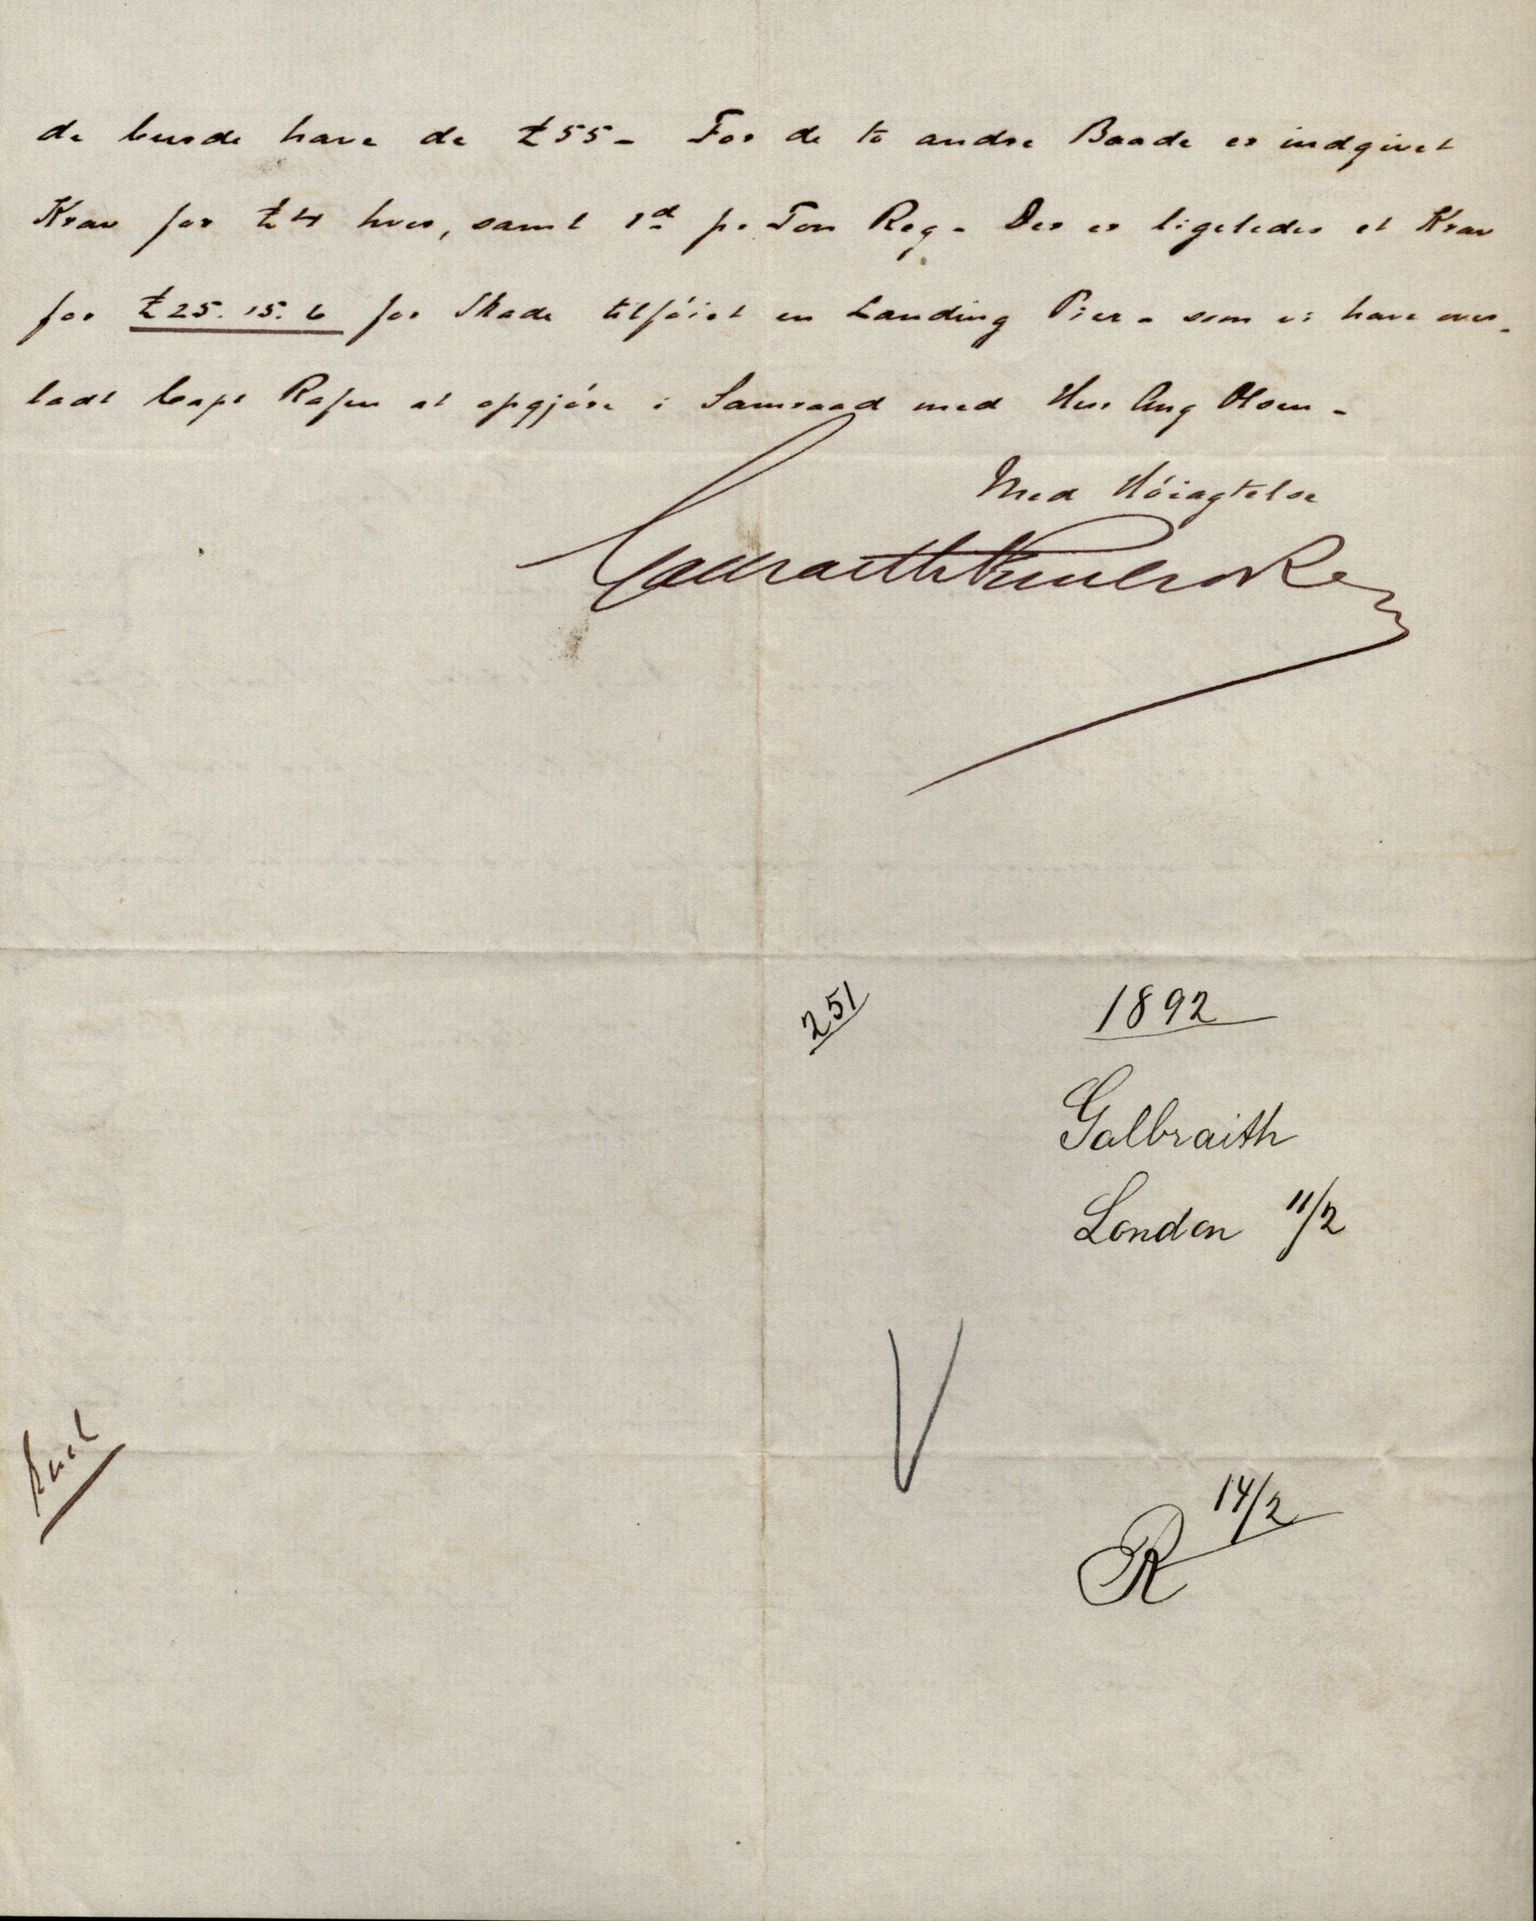 de burde have de £55 - For de to andre Baade er indgivet
Krav for £4 hver, samt 1d pr Ton Reg - Der er ligeledes et Krav
for £25. 15. 6 for Skade tilføiet en Landing Pier - som vi have over-
ladt Capt Rafen at opgjøre i Samraad med Herr Aug Olsen -
Med Høiagtelse
Galbraith Pembroke
251
1892
Galbraith
London 11/2
R 14/2